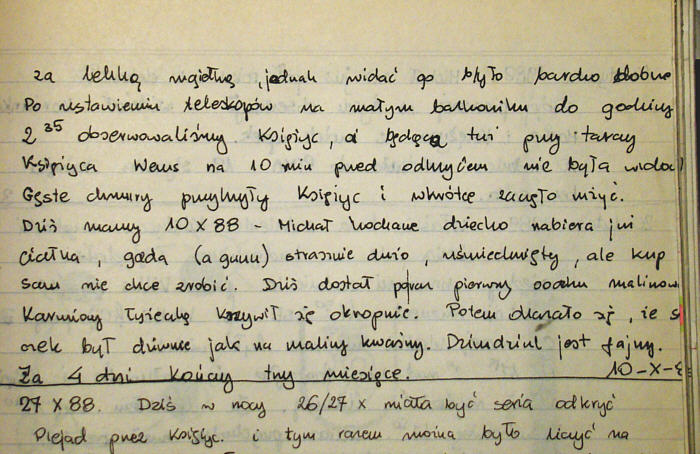 za lekką mgiełką, jednak widać go było bardzo dobrze
Po ustawieniu teleskopów na małym balkoniku do godziny
2³⁵ obserwowaliśmy Księżyc, a będąca tuż przy tarczy
Księżyca Wenus na 10 min przed odkryciem nie była widocz
Gęste chmury przykryły Księżyc i wkrótce zaczęło mżyć.
Dziś mamy 10 X 88 - Michał kochane dziecko nabiera już
ciałka, gada (a guuu) strasznie dużo, uśmiechnięty, ale kup
sam nie chce zrobić. Dziś dostał pierwszy soczku malinow
Karmiony łyżeczką krzywił się okropnie. Potem okazało się, że s
oczek był dziwnie jak na maliny kwaśny. Dziudziul jest fajny.
Za 4 dni kończy trzy miesiące. 10-X-8
27 X 88. Dziś w nocy 26/27 X miała być seria odkryć
Plejad przez Księżyc. i tym razem można było liczyć na